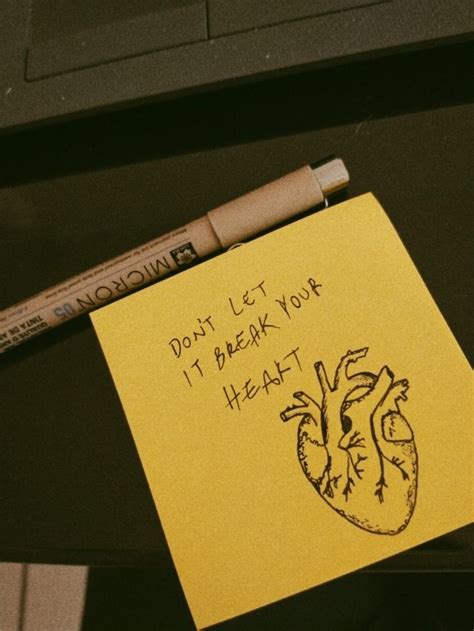 MICRON 05
TINTA DE
DON'T LET
IT BREAK YOUR
HEART